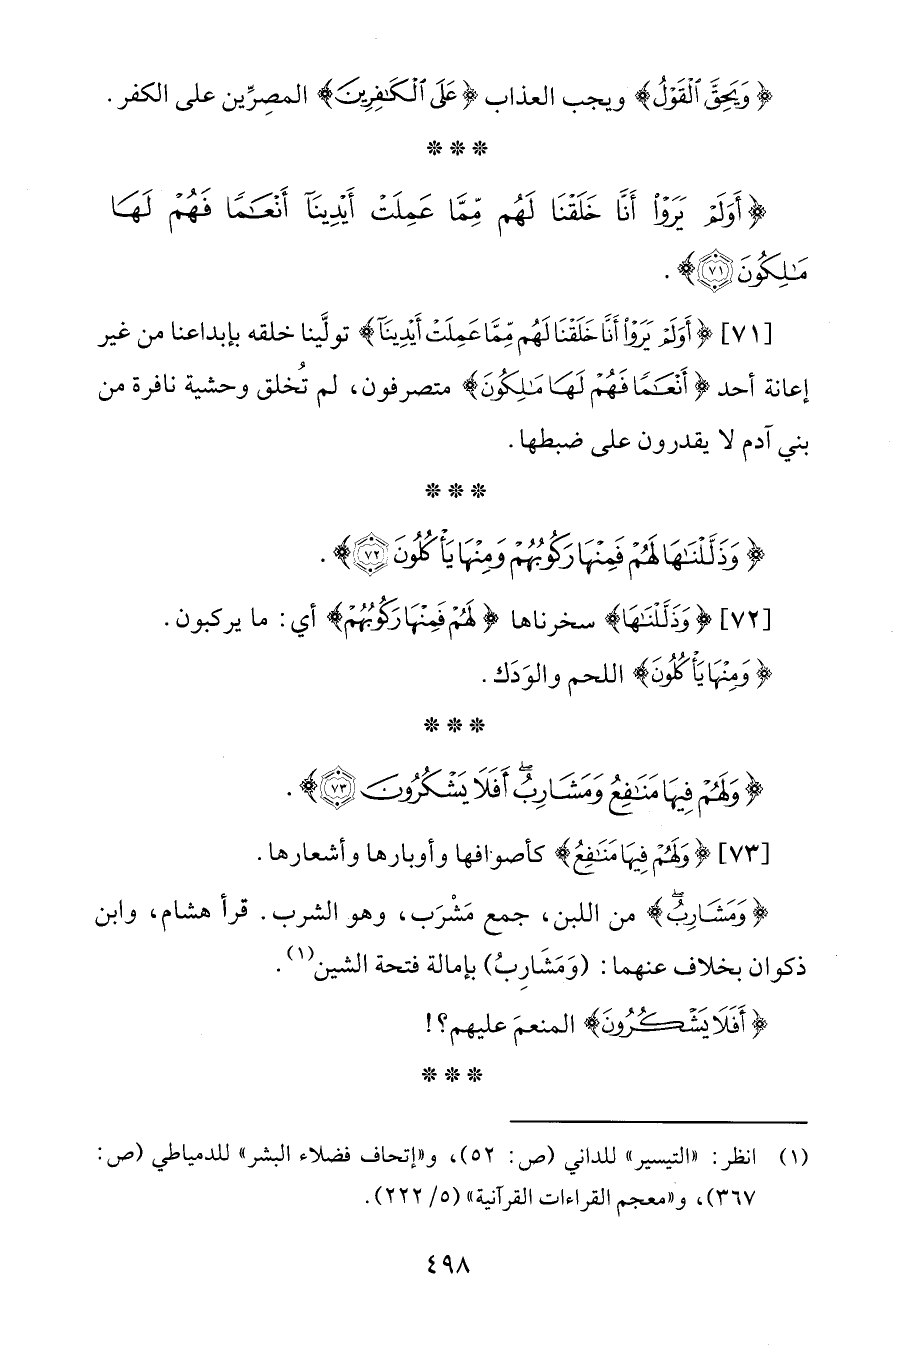 ﴿وَيَحِقَّ ٱلْقَوْلُ﴾ ويجب العذاب ﴿عَلَى ٱلْكَٰفِرِينَ﴾ المصرِّين على الكفر.
* * *
﴿أَوَلَمْ يَرَوْا۟ أَنَّا خَلَقْنَا لَهُم مِّمَّا عَمِلَتْ أَيْدِينَآ أَنْعَٰمًا فَهُمْ لَهَا
مَٰلِكُونَ ٧١﴾.
[٧١] ﴿أَوَلَمْ يَرَوْا۟ أَنَّا خَلَقْنَا لَهُم مِّمَّا عَمِلَتْ أَيْدِينَآ﴾ تولَّينا خلقه بإبداعنا من غير
إعانة أحد ﴿أَنْعَٰمًا فَهُمْ لَهَا مَٰلِكُونَ﴾ متصرفون، لم تُخلق وحشية نافرة من
بني آدم لا يقدرون على ضبطها.
* * *
﴿وَذَلَّلْنَٰهَا لَهُمْ فَمِنْهَا رَكُوبُهُمْ وَمِنْهَا يَأْكُلُونَ ٧٢﴾.
[٧٢] ﴿وَذَلَّلْنَٰهَا﴾ سخرناها ﴿لَهُمْ فَمِنْهَا رَكُوبُهُمْ﴾ أي: ما يركبون.
﴿وَمِنْهَا يَأْكُلُونَ﴾ اللحم والوَدَك.
* * *
﴿وَلَهُمْ فِيهَا مَنَٰفِعُ وَمَشَارِبُ ۖ أَفَلَا يَشْكُرُونَ ٧٣﴾.
[٧٣] ﴿وَلَهُمْ فِيهَا مَنَٰفِعُ﴾ كأصوافها وأوبارها وأشعارها.
﴿وَمَشَارِبُ ۖ﴾ من اللبن، جمع مَشْرَب، وهو الشرب. قرأ هشام، وابن
ذكوان بخلاف عنهما: (وَمَشَارِبُ) بإمالة فتحة الشين(١).
﴿أَفَلَا يَشْكُرُونَ﴾ المنعمَ عليهم؟!
* * *
(١) انظر: «التيسير» للداني (ص: ٥٢)، و«إتحاف فضلاء البشر» للدمياطي (ص:
٣٦٧)، و«معجم القراءات القرآنية» (٥/ ٢٢٢).
٤٩٨